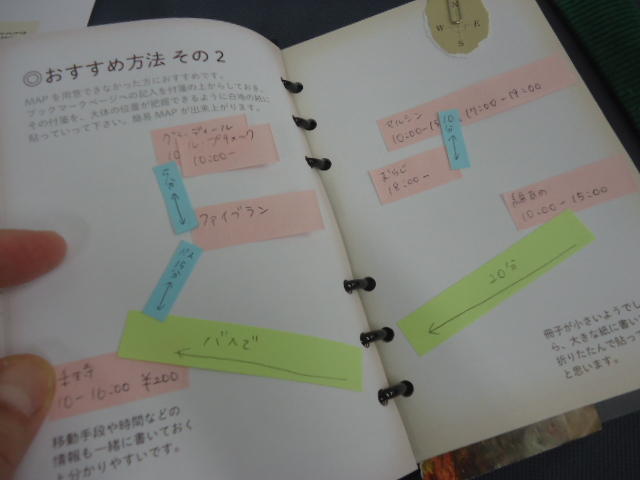 ◎おすすめ方法 その2
MAPを用意できなかった方におすすめです。
ブックマークページへの記入を付箋の上からしておき、
その付箋を、大体の位置が把握できるように白地の紙に
貼っていって下さい。簡易MAPが出来上がります。
10:00-
5分
ファイブラン
バス
15分
バスで
10-16:00 ¥200
移動手段や時間などの
情報も一緒に書いておく
と分かりやすいです。
N
W E
S
マルシン
17:00-19:00
10分
18:00-
10:00-15:00
20分
冊子が小さいようでし
ら、大きな紙に書い
折りたたんで貼っ
と思います。